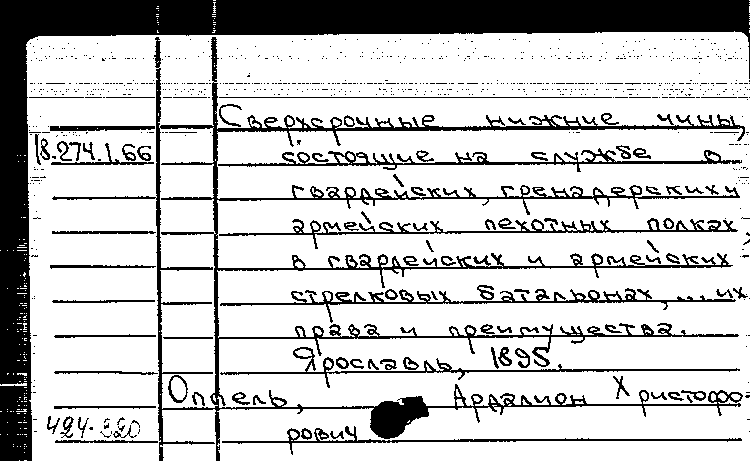 Сверхсрочные нижние чины,
18.274.1.66 состоящие на службе в
гвардейских, гренадерских и
армейских пехотных полках,
в гвардейских и армейских
стрелковых батальонах, ... их
права и преимущества.
Ярославль, 1895.
Оппель, Ардалион Христофо-
424-320 рович